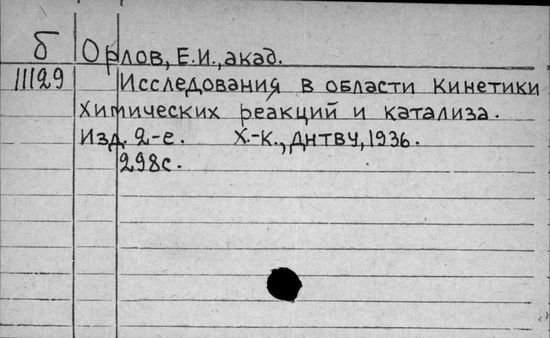 б Орлов, Е.И., акад.
11129 Исследования в области кинетики
химических реакций и катализа.
Изд. 2-е. Х.-К., ДНТВУ, 1936.
298с.